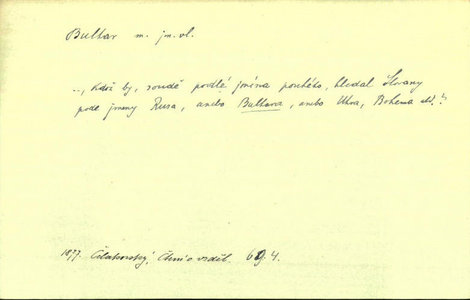 Bulbar m. jm. vl.
..., kdož by, soudě podlé jména pouhého, hledal Slovany
pode jmény Rusa, anebo Bulbara, anebo Uhra, Bohema atd."
1877. Čelakovský, Čtení o vzděl. 64.